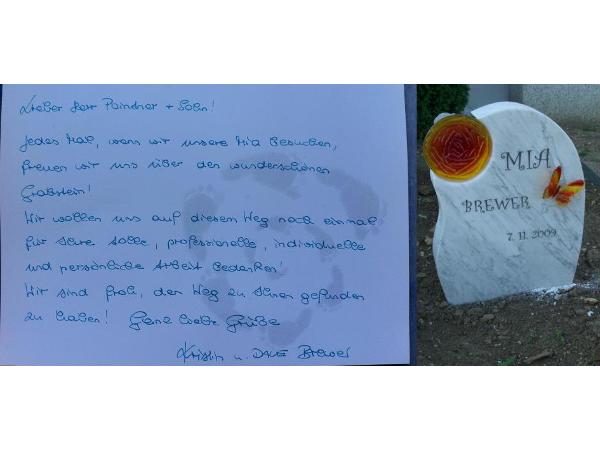 Lieber Herr Poindner + Sohn!
Jedes Mal, wenn wir unsere Mia besuchen,
freuen wir uns über den wunderschönen
Grabstein!
Wir wollen uns auf diesem Weg noch einmal
für Ihre tolle, professionelle, individuelle
und persönliche Arbeit bedanken!
Wir sind froh, den Weg zu Ihnen gefunden
zu haben! Ganz liebe Grüße
Kristin u. DAVE Brewer
MIA
BREWER
7. 11. 2009